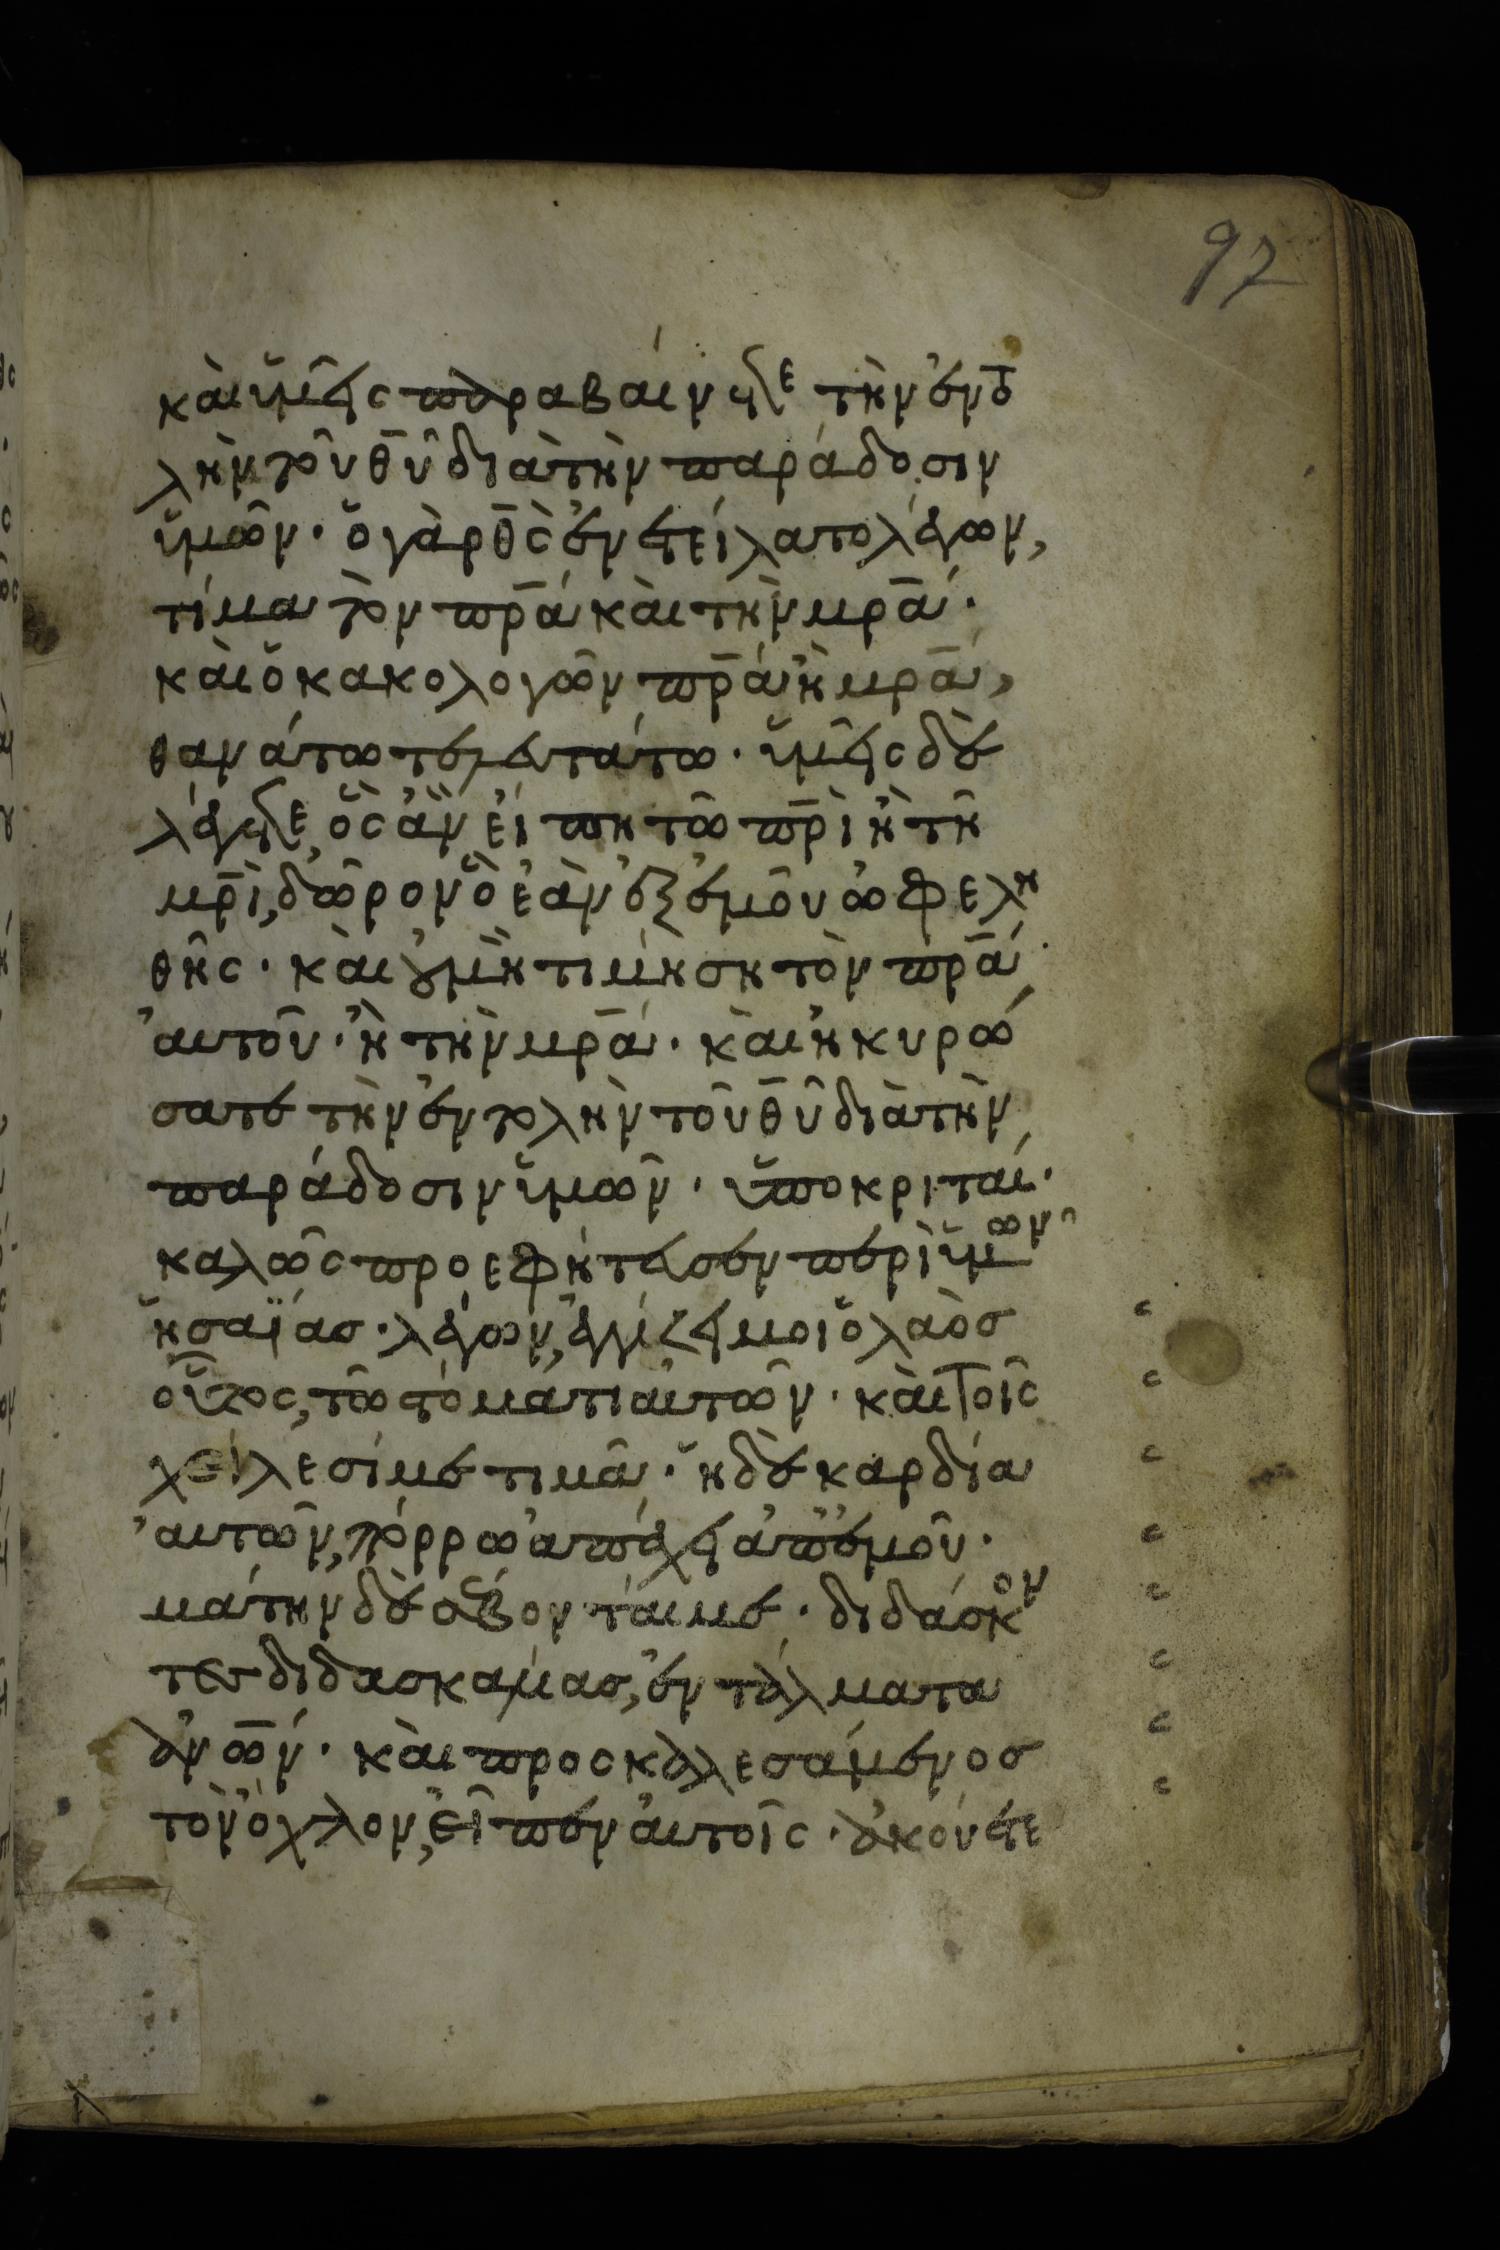 97
καὶ ὑμεῖς παραβαίνετε τὴν ἐντο
λὴν τοῦ θ̅υ̅ διὰ τὴν παράδοσιν
ὑμῶν· ὁ γὰρ θ̅ς̅ ἐνετείλατο λέγων,
τίμα τὸν π̅ρ̅α̅ καὶ τὴν μ̅ρ̅α̅·
καὶ ὁ κακολογῶν π̅ρ̅α̅ ἢ μ̅ρ̅α̅,
θανάτω τελευτάτω· ὑμεῖς δὲ
λέγετε, ὃς ἂν εἴπη τῶ π̅ρ̅ι̅ ἢ τῆ
μ̅ρ̅ι̅, δῶρον ὃ ἐὰν ἐξ ἐμοῦ ὠφελη
θῆς· καὶ οὐ μὴ τιμήση τὸν π̅ρ̅α̅
αὐτοῦ· ἢ τὴν μ̅ρ̅α̅· καὶ ἠκυρώ
σατε τὴν ἐντολὴν τοῦ θ̅υ̅ διὰ τὴν
παράδοσιν ὑμῶν· ὑποκριταί·
καλῶς προεφήτευσεν περὶ ὑμῶν
ἡσαΐας· λέγων, ἐγγίζει μοι ὁ λαὸσ
οὗτος, τῶ στόματι αὐτῶν· καὶ τοῖς
χείλεσί με τιμᾶ· ἡ δὲ καρδία
αὐτῶν, πόρρω ἀπέχει ἀπ' ἐμοῦ·
μάτην δὲ σέβονταί με· διδάσκον
τες διδασκαλίας, ἐντάλματα
α̅ν̅ω̅ν̅· καὶ προσκαλεσάμενοσ
τὸν ὄχλον, εἶπεν αὐτοῖς· ἀκούετε